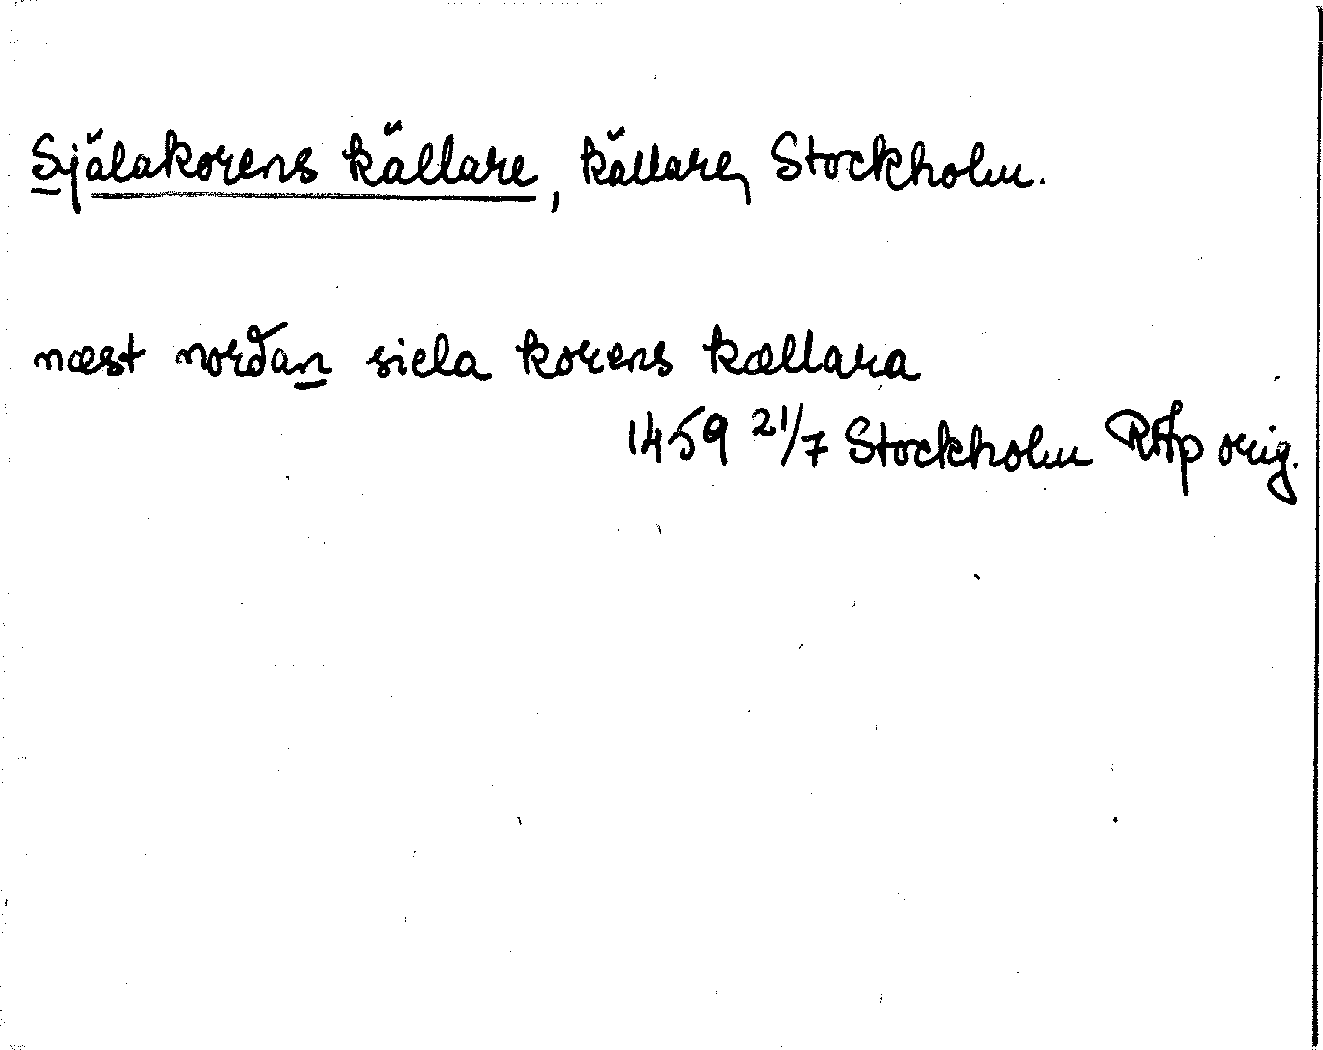 Själakorens källare, källare, Stockholm.
næst nordan siela korens kællara
1459 21/7 Stockholm RAp orig.